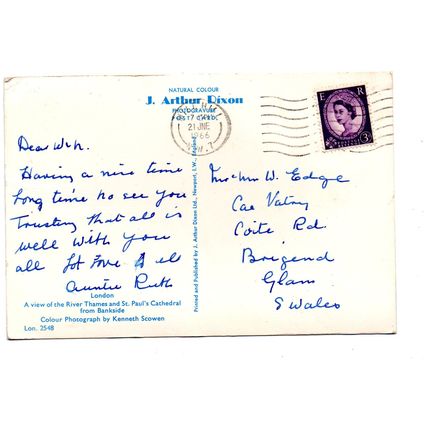 NATURAL COLOUR
J. Arthur Dixon
PHOTOGRAVURE
POST CARD
21 JNE
1966
E R
3D
Dear
Having a nice time
Long time no see you
Trusting that all is
well with you
all Lot Love
Auntie Ruth
W. Edge
Cae
Coite Rd.
Brigend
Glam
S Wales
Printed and Published by J. Arthur Dixon Ltd., Newport, I.W., England
London
A view of the River Thames and St. Paul's Cathedral
from Bankside
Colour Photograph by Kenneth Scowen
Lon. 2548